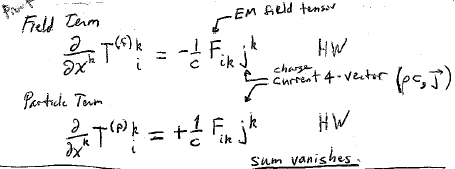 Proof
Field Term
EM field tensor
∂/∂x^k T^(f)k_i = -1/c F_ik j^k HW
charge
current 4-vector (ρc, j⃗)
Particle Term
∂/∂x^k T^(p)k_i = +1/c F_ik j^k HW
sum vanishes.